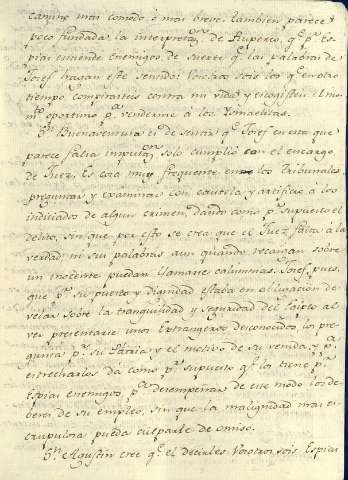 camino mas comodo ó mas breve. tambien parece
poco fundada la interpretaⁿ de Ruperto, q.e p.r Es-
pias entiende enemigos, de suerte q.e las palabras de
Josef hagan este sentido: Vosotros sois los q.e en otro
tiempo conspirasteis contra mi vida, y escogisteis el mo-
m.to oportuno p.a venderme á los Ysmaelitas.
S.n Buenaventura es de sentir q.e Josef en esta que
parece falsa imputa.on solo cumplió con el encargo
de Juez. Es cosa muy frequente en los Tribunales
preguntar y examinar con cautela y artificio á los
indiciados de algun crimen, dando como p.r supuesto el
delito, sin que por esto se crea que el Juez falta a la
verdad, ni sus palabras aun quando recaigan sobre
un inocente, puedan llamarse calumnias. Josef, pues,
que p.r su puesto y dignidad estaba en obligacion de
velar sobre la tranquilidad y seguridad del Egipto al
ver presentarse unos Extrangeros desconocidos, los pre-
gunta p.r su Patria, y el motivo de su venida, y p.a
estrecharlos dá como p.r supuesto q.e los tiene p.r
Espias enemigos, p.a desempeñar de ese modo los de-
beres de su empleo, sin que la malignidad mas es-
crupulosa pueda culparle de omiso.
S.n Agustin cree q.e el decirles Vosotros sois Espias